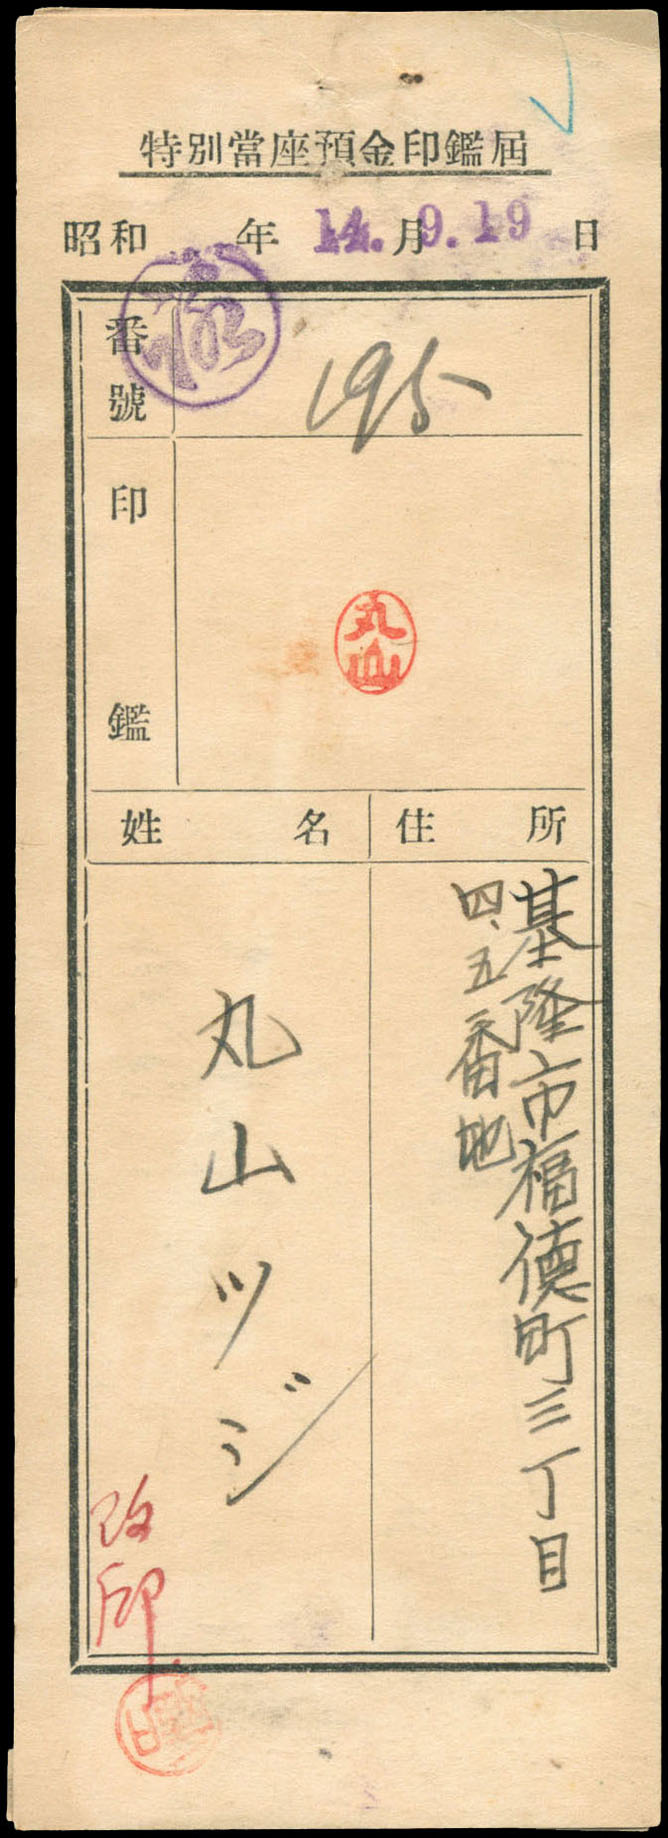 特別當座預金印鑑屆
昭和 年 14. 月 9.19 日
番號
195
印鑑
丸山
姓名
住所
基隆市福德町三丁目
四、五番地
丸山ツジ
改印